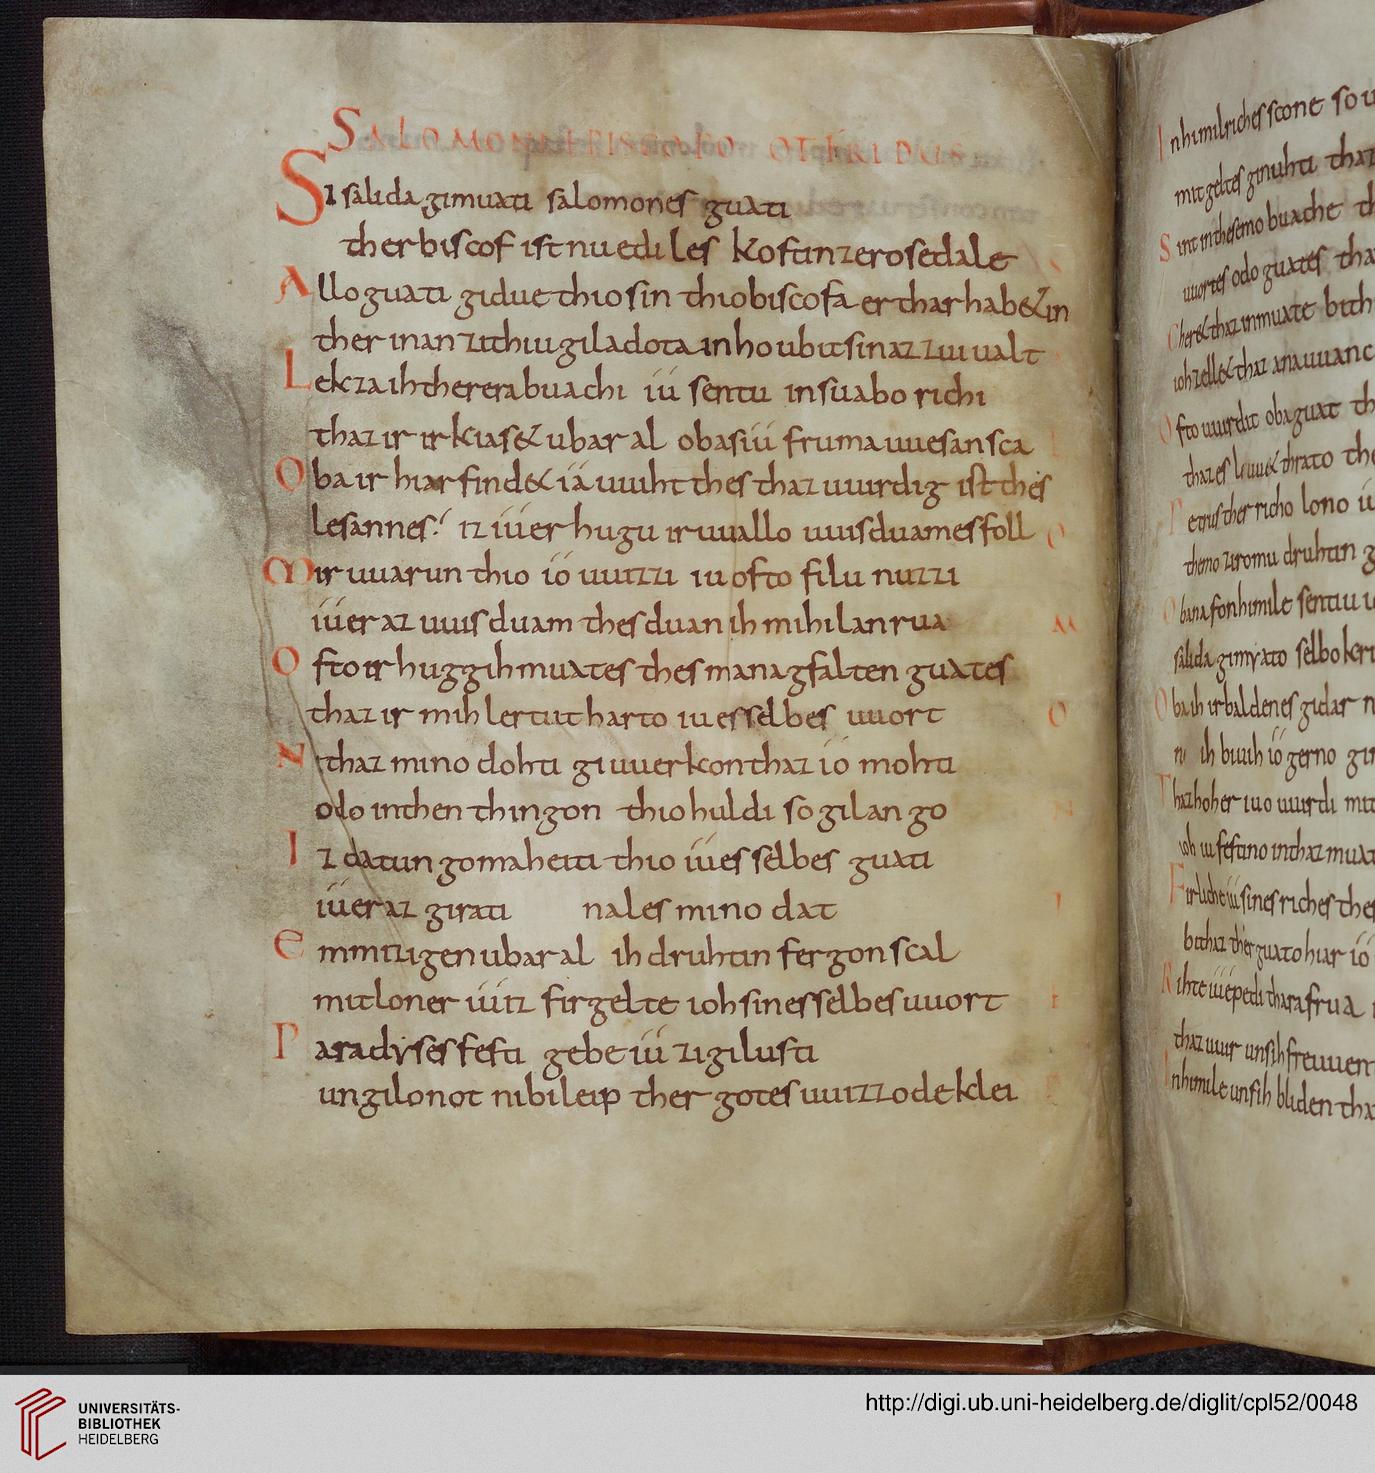 SALOMONI EPISCOPO OTFRIDUS
Si salida gimuati salomones guati
ther biscof ist nu ediles kostinzero sedale
Allo guati gidue thio sin thio biscofa er thar hab& in
ther inan zi thiu giladota in houbit sinaz zuiualt
Lekza ih therera buachi iú sentu in suabo richi
thaz ir irkias& ubar al oba siú fruma uuesan scal
Oba ir hiar find& iá uuiht thes thaz uuirdig ist thes
lesannes iz iúer hugu iruuallo uuisduames foll
Mir uuarun thio ió uuizzi iu ofto filu nuzzi
iúeraz uuisduam thes duan ih mihilan rua
Ofto ir huggih muates thes managfalten guates
thaz ir mih lertut harto iues selbes uuort
N thaz mino dohti giuuerkon thaz ió mohti
odo in then thingon thio huldi so gilango
Iz datun gomaheiti thio iúes selbes guati
iúeraz girati nales mino dat
Emmizigen ubar al ih druhtin fergon scal
mit loner iú iz firgelte ioh sines selbes uuort
Paradyses festi gebe iú zi gilusti
ungilonot ni bileip ther gotes uuizzode kleip
In himilriches scone so u
mit geltes ginuhti thaz
Sint in thesemo buache th
uuortes odo guates tha
thaz in muate bith
ioh zell& thaz ana uuanc
Ofto uuirdit oba guat th
thaz es thrato the
Petrus ther richo lono iu
themo zi romu druhtin g
Oba fon himile sentiu
salida gimyato selbo kri
Oba ih irbalden es gidar n
ni ih buuih ió gerno gi
Thaz hoher iuo uuirdi mit
ioh iu festino in thaz muat
Firliche iú sines riches the
bi thaz ther guato hiar ió
Rihte iúe pedi thara frua
thaz uuir unsih freuuen
In himile unsih bliden tha
UNIVERSITÄTS-
BIBLIOTHEK
HEIDELBERG
http://digi.ub.uni-heidelberg.de/diglit/cpl52/0048